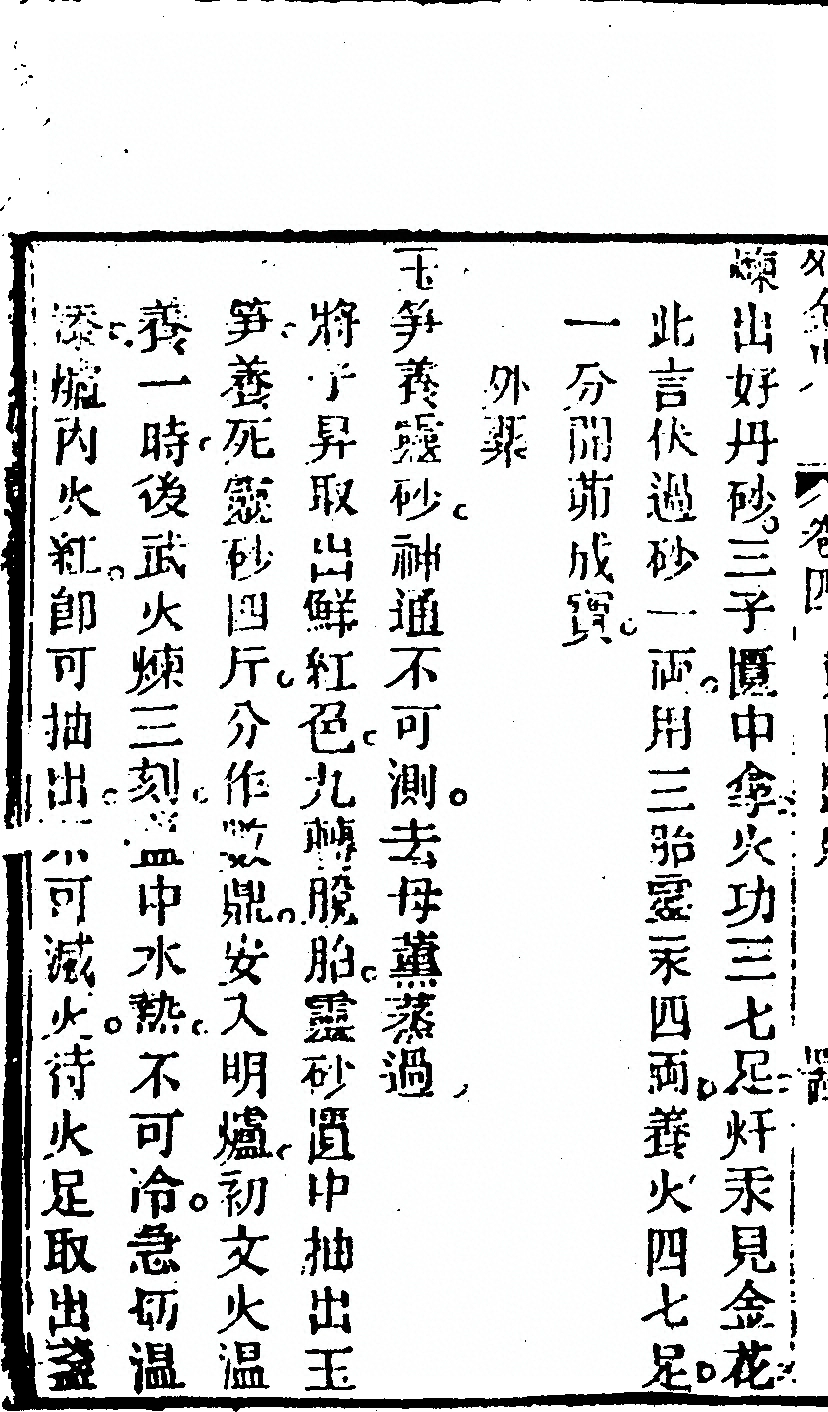 卷四
煉出好丹砂三子匱中拿火功三七足灴汞見金花
此言伏過砂一両用三胎靈汞四両養火四七足
一分開茆成寶
外藥
玉笋養靈砂神通不可測去母薰蒸過
將子昇取出鮮紅色九轉脫胎靈砂置中抽出玉
笋養死靈砂四斤分作数鼎安入明爐初文火温
養一時後武火煉三刻盖中水熱不可冷急切温
添爐内火紅即可抽出不可滅火待火足取出盞